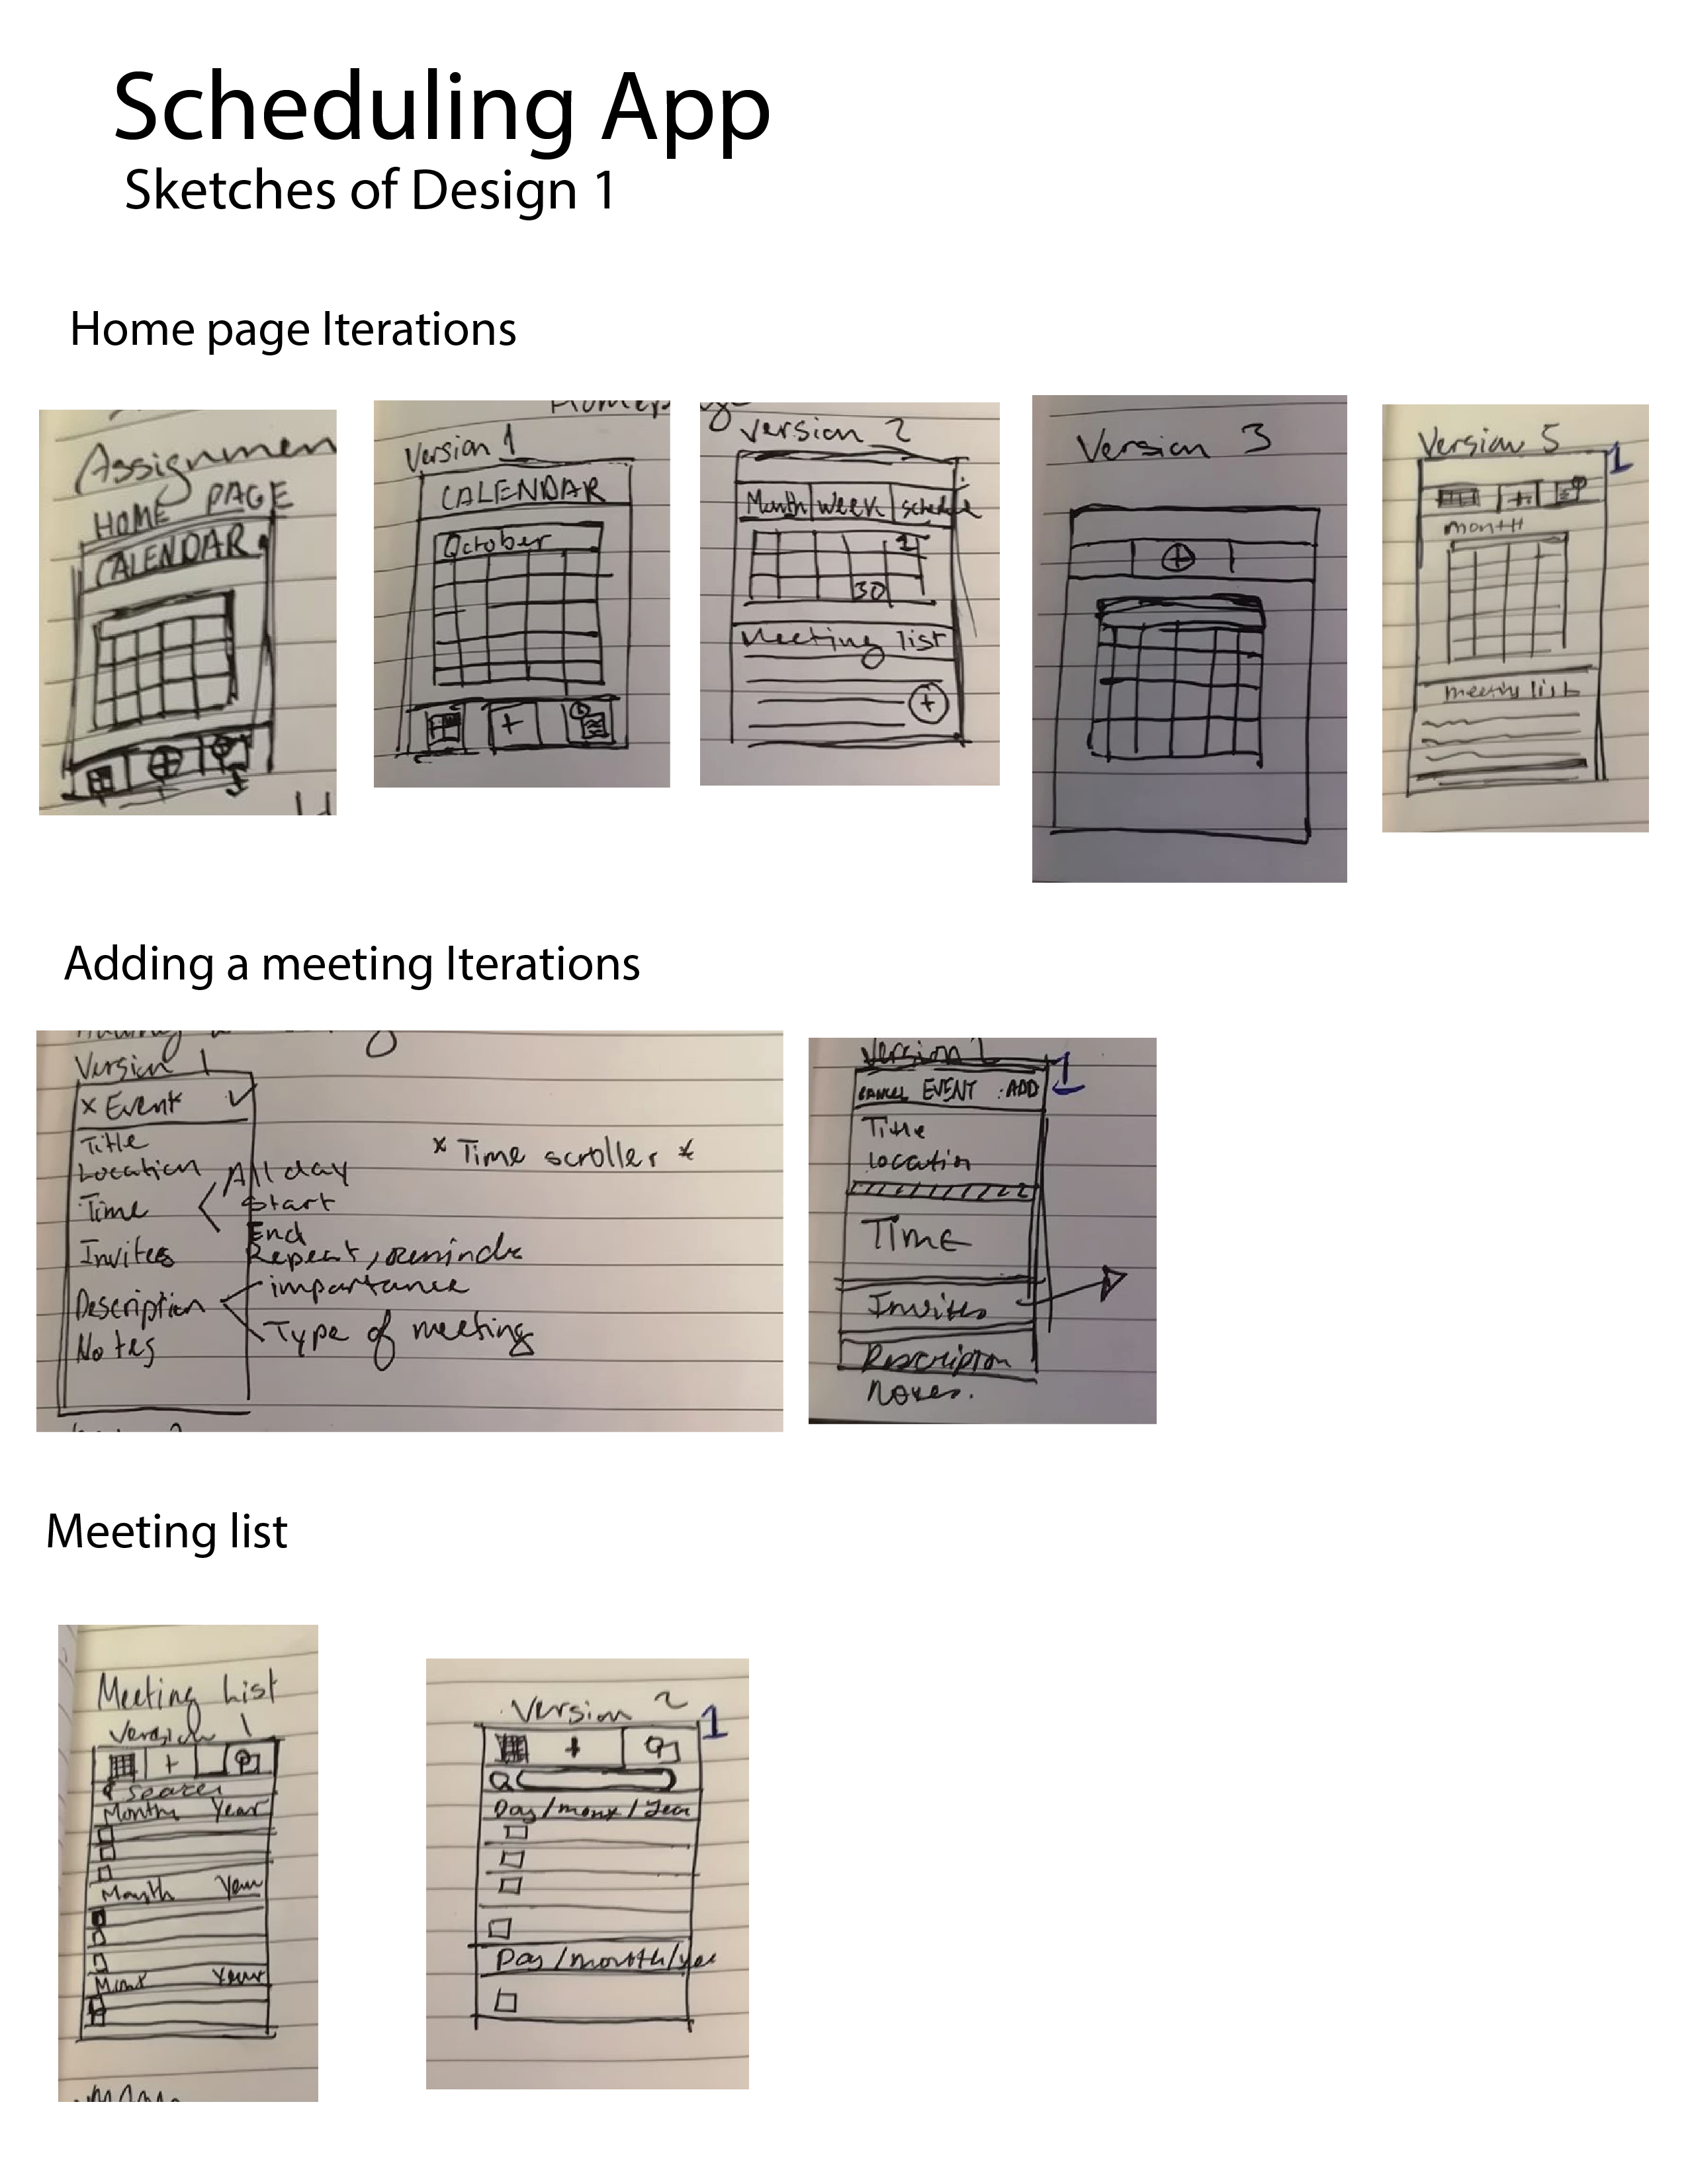 Scheduling App
Sketches of Design 1
Home page Iterations
Assignmen
HOME PAGE
CALENDAR
Version 1
CALENDAR
October
Version 2
Month Week
1
30
Meeting list
+
Version 3
+
Version 5
1
month
meeting list
Adding a meeting Iterations
Version 1
x Event ✓
Title
Location
Time
All day
Start
End
Repeat,
Invites
Description
importance
Type of meeting
Notes
* Time scroller *
Version
1
CANCEL EVENT ADD
Title
Location
TIME
Invites
Description
Notes.
Meeting list
Meeting List
Version 1
+
Month Year
Month
Version 2
1
+
Day/
Day/month/